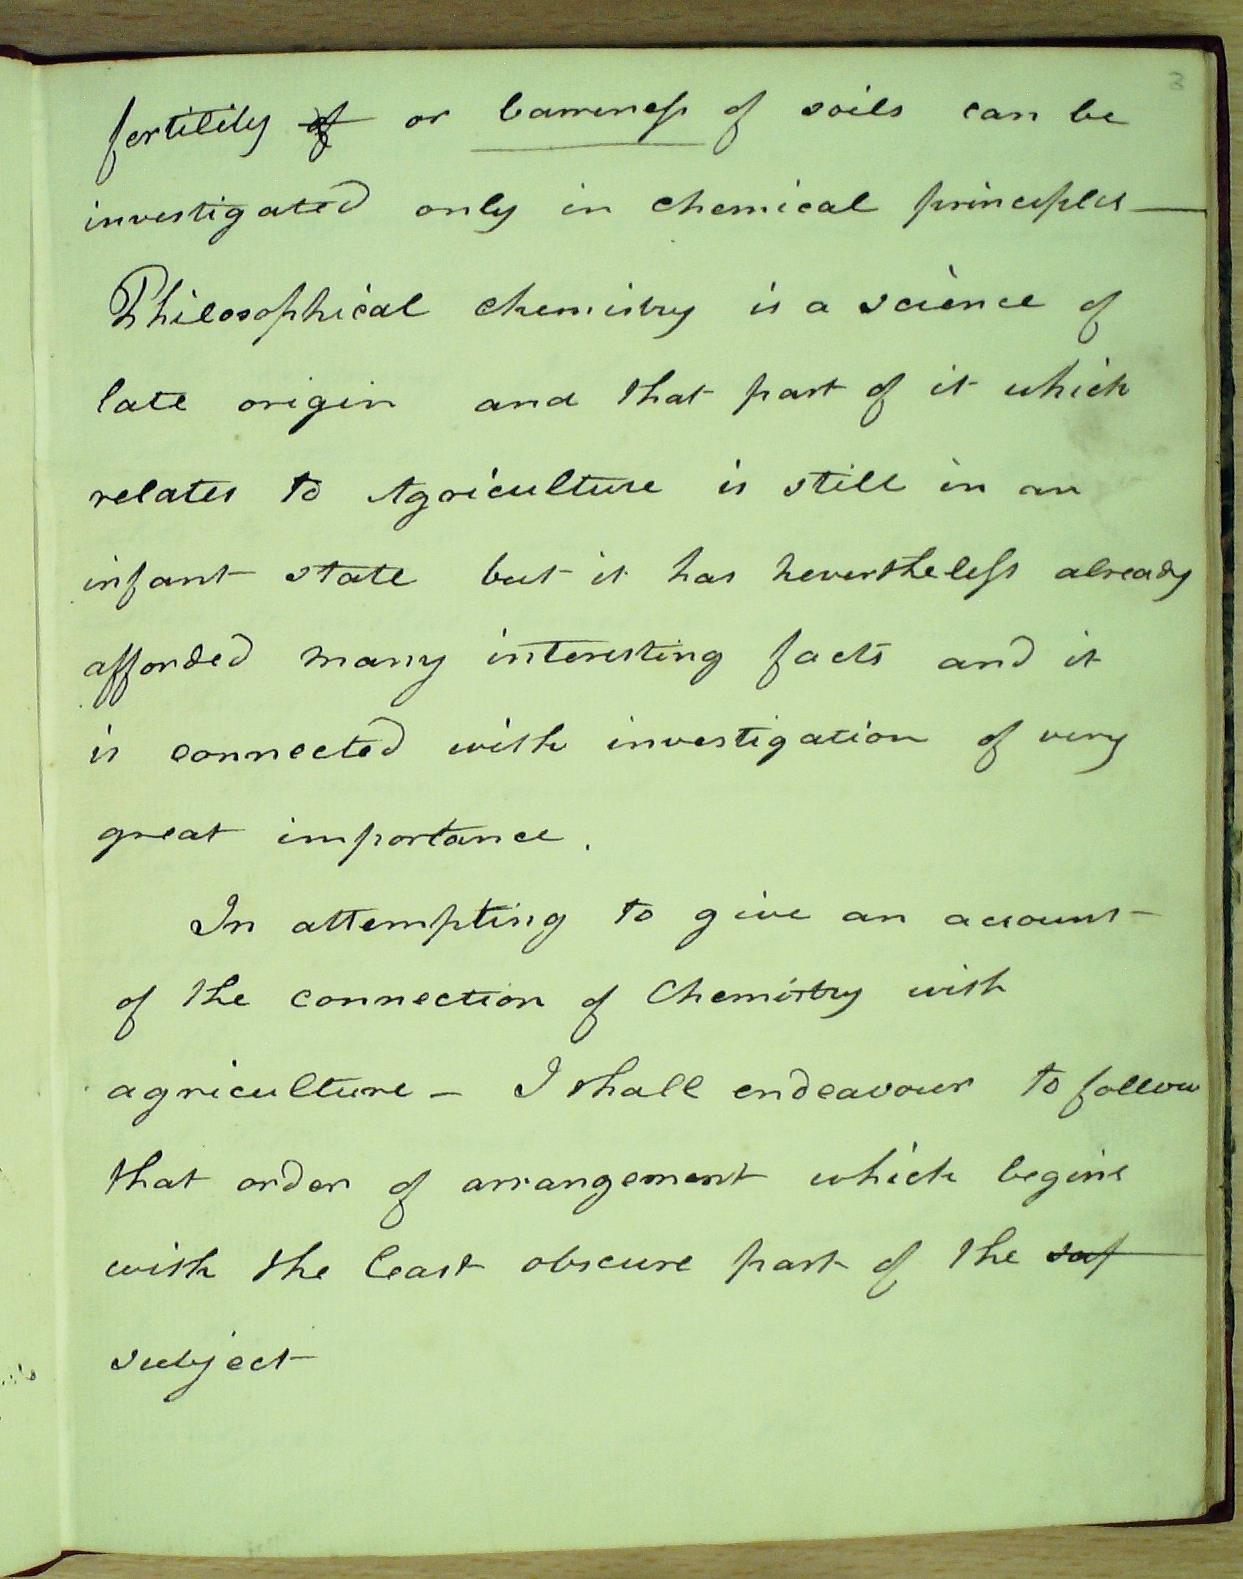 3
fertility of or barreness of soils can be
investigated only in chemical principles —
Philosophical chemistry is a science of
late origin and that part of it which
relates to Agriculture is still in an
infant state but it has nevertheless already
afforded many interesting facts and it
is connected with investigation of very
great importance.
In attempting to give an account
of the connection of Chemistry with
agriculture – I shall endeavour to follow
that order of arrangement which begins
with the least obscure part of the
subject